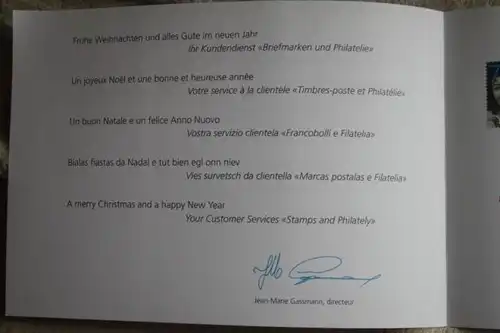 Frohe Weihnachten und alles Gute im neuen Jahr
Ihr Kundendienst «Briefmarken und Philatelie»
Un joyeux Noël et une bonne et heureuse année
Votre service à la clientèle «Timbres-poste et Philatélie»
Un buon Natale e un felice Anno Nuovo
Vostra servizio clientela «Francobolli e Filatelia»
Bialas fiastas da Nadal e tut bien egl onn niev
Vies survetsch da clientella «Marcas postalas e Filatelia»
A merry Christmas and a happy New Year
Your Customer Services «Stamps and Philately»
Jean-Marie Gassmann, directeur